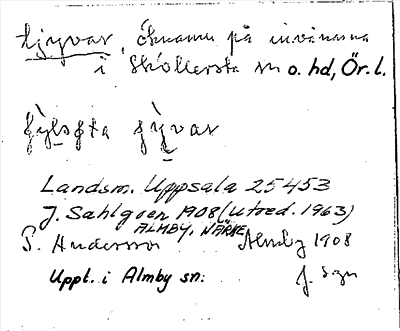 tjyvar, öknamn på invånarna
i Sköllersta sn o. hd, Ör. l.
Landsm. Uppsala 25453
J. Sahlgren 1908 (Utred. 1963)
ALMBY, NÄRKE
P. Andersson Almby 1908
Uppt. i Almby sn: J. Sgn